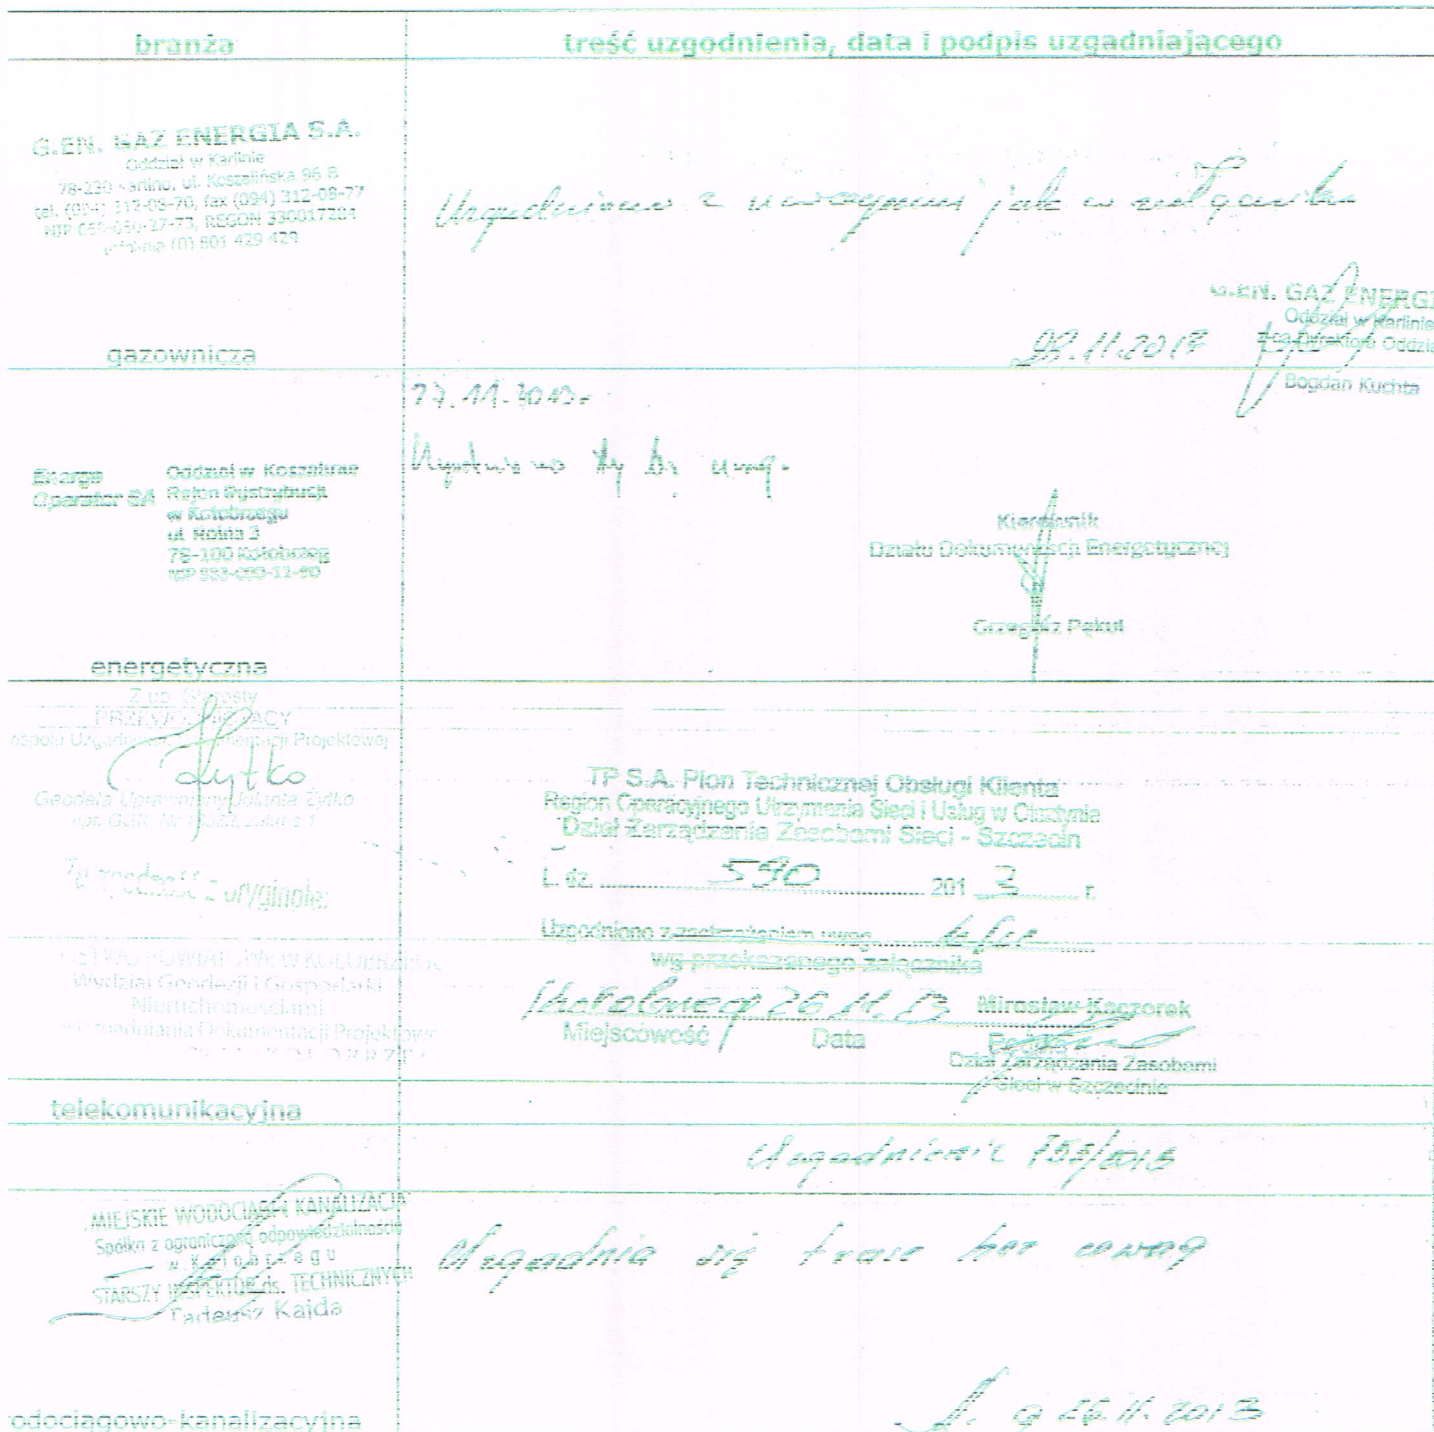 branża
treść uzgodnienia, data i podpis uzgadniającego
G.EN. GAZ ENERGIA S.A.
Oddział w Karlinie
78-230 Karlino, ul. Koszalińska 96 B
tel. (094) 312-08-70, fax (094) 312-08-77
REGON 330017284
infolinia (0) 801 429 429
gazownicza
Uzgodniono z uwagami jak w załączniku
G.EN. GAZ ENERGI
Oddział w Karlinie
Z-ca Dyrektora Oddzia
Bogdan Kuchta
Energa
Operator SA
Oddział w Koszalinie
Rejon Dystrybucji
w Kołobrzegu
ul. Rolna 3
78-100 Kołobrzeg
energetyczna
Uzgodniono bez uwag.
Kierownik
Działu Dokumentacji Energetycznej
Grzegorz Pękul
Z up. Starosty
PRZEWODNICZĄCY
espołu Uzgadniania Dokumentacji Projektowej
Żytko
Geodeta Uprawniony Jolanta Żytko
Za zgodność z oryginałem
Wydział Geodezji i Gospodarki
Nieruchomościami
Uzgadniania Dokumentacji Projektowe
telekomunikacyjna
TP S.A. Pion Technicznej Obsługi Klienta
Region Operacyjnego Utrzymania Sieci i Usług w Olsztynie
Dział Zarządzania Zasobami Sieci - Szczecin
L. dz. 590 201 3 r.
Uzgodniono z zastrzeżeniem uwag
wg przekazanego załącznika
Kołobrzeg 26.11.13
Mirosław Kaczorek
Miejscowość Data Podpis
Dział Zarządzania Zasobami
Sieci w Szczecinie
MIEJSKIE WODOCIĄGI I KANALIZACJA
Spółka z ograniczoną odpowiedzialnością
w Kołobrzegu
STARSZY INSPEKTOR ds. TECHNICZNYCH
Tadeusz Kajda
odociągowo-kanalizacyjna
Uzgadnia się trasę bez uwag
26.11.2013